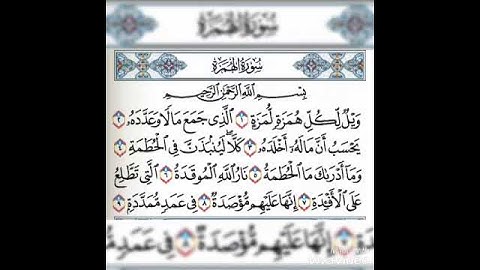 سُورَةُ الهُمَزَةِ
سُورَةُ الهُمَزَةِ
بِسْمِ اللَّهِ الرَّحْمَٰنِ الرَّحِيمِ
وَيْلٌ لِّكُلِّ هُمَزَةٍ لُّمَزَةٍ ١ الَّذِي جَمَعَ مَالًا وَعَدَّدَهُ ٢
يَحْسَبُ أَنَّ مَالَهُ أَخْلَدَهُ ٣ كَلَّا لَيُنبَذَنَّ فِي الْحُطَمَةِ ٤
وَمَا أَدْرَاكَ مَا الْحُطَمَةُ ٥ نَارُ اللَّهِ الْمُوقَدَةُ ٦ الَّتِي تَطَّلِعُ
عَلَى الْأَفْئِدَةِ ٧ إِنَّهَا عَلَيْهِم مُّؤْصَدَةٌ ٨ فِي عَمَدٍ مُّمَدَّدَةٍ ٩
إِنَّهَا عَلَيْهِم مُّؤْصَدَةٌ ٨ فِي عَمَدٍ